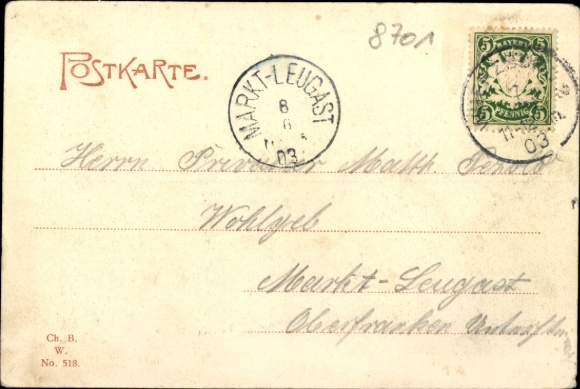 8701
POSTKARTE.
MARKT-LEUGAST
8
6
03
5 BAYERN 5
5 PFENNIG 5
03
Herrn Privatier Matth
Wohlgeb
Markt-Leugast
Oberfranken
Ch. B.
W.
No. 518.